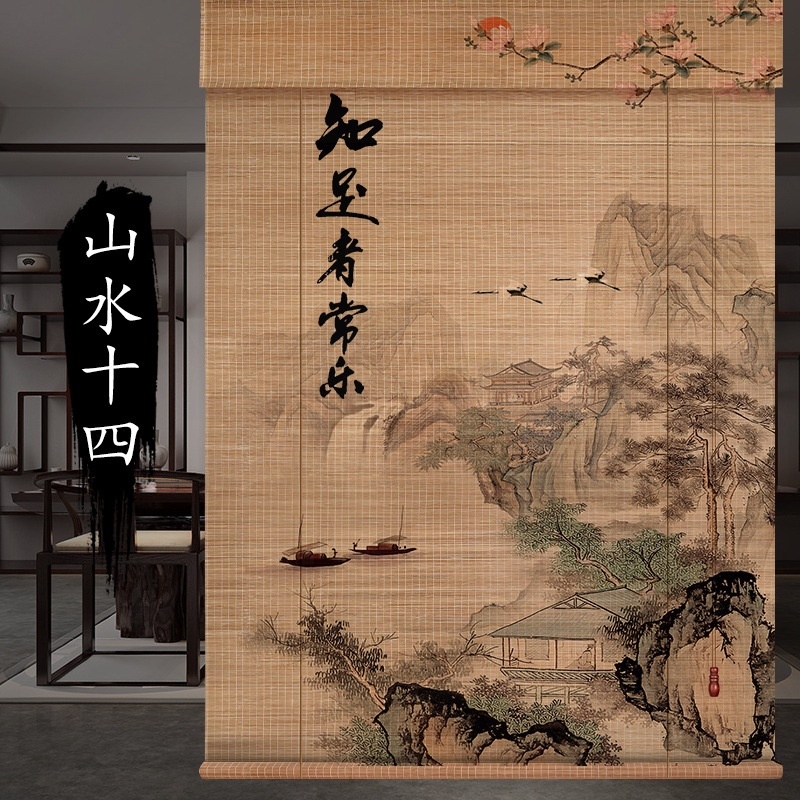 知足者常乐
山水十四